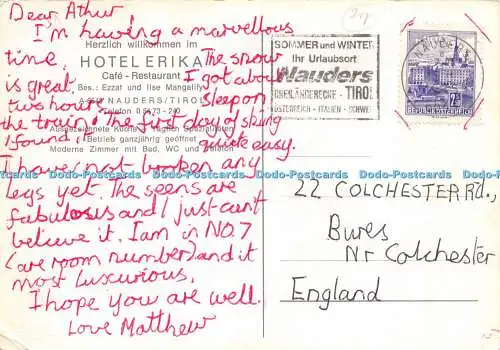 Dear Athur,
I'm having a marvellous
time. The snow
is great. I got about
two hours sleep on
the train. The first day of skiing
I found it quite easy.
I have not broken any
legs yet. The seens are
fabulous and I just cant
believe it. I am in NO.7
(are room number) and it
most luxurious.
I hope you are well.
Love Matthew
Herzlich willkommen im
HOTEL ERIKA
Café - Restaurant
Bes.: Ezzat und Ilse Mangality
NAUDERS/TIROL
Ausgezeichnete Küche Spezialitäten
Betrieb ganzjährig geöffnet
Moderne Zimmer mit Bad, WC und Telefon
SOMMER und WINTER
Ihr Urlaubsort
Nauders
RESCHENECKE - TIROL
ÖSTERREICH - ITALIEN - SCHWEIZ
NAUDERS
REPUBLIK ÖSTERREICH
22 COLCHESTER Rd.,
Bures
Nr Colchester
England
Dodo-Postcards Dodo-Postcards Dodo-Postcards Dodo-Postcards